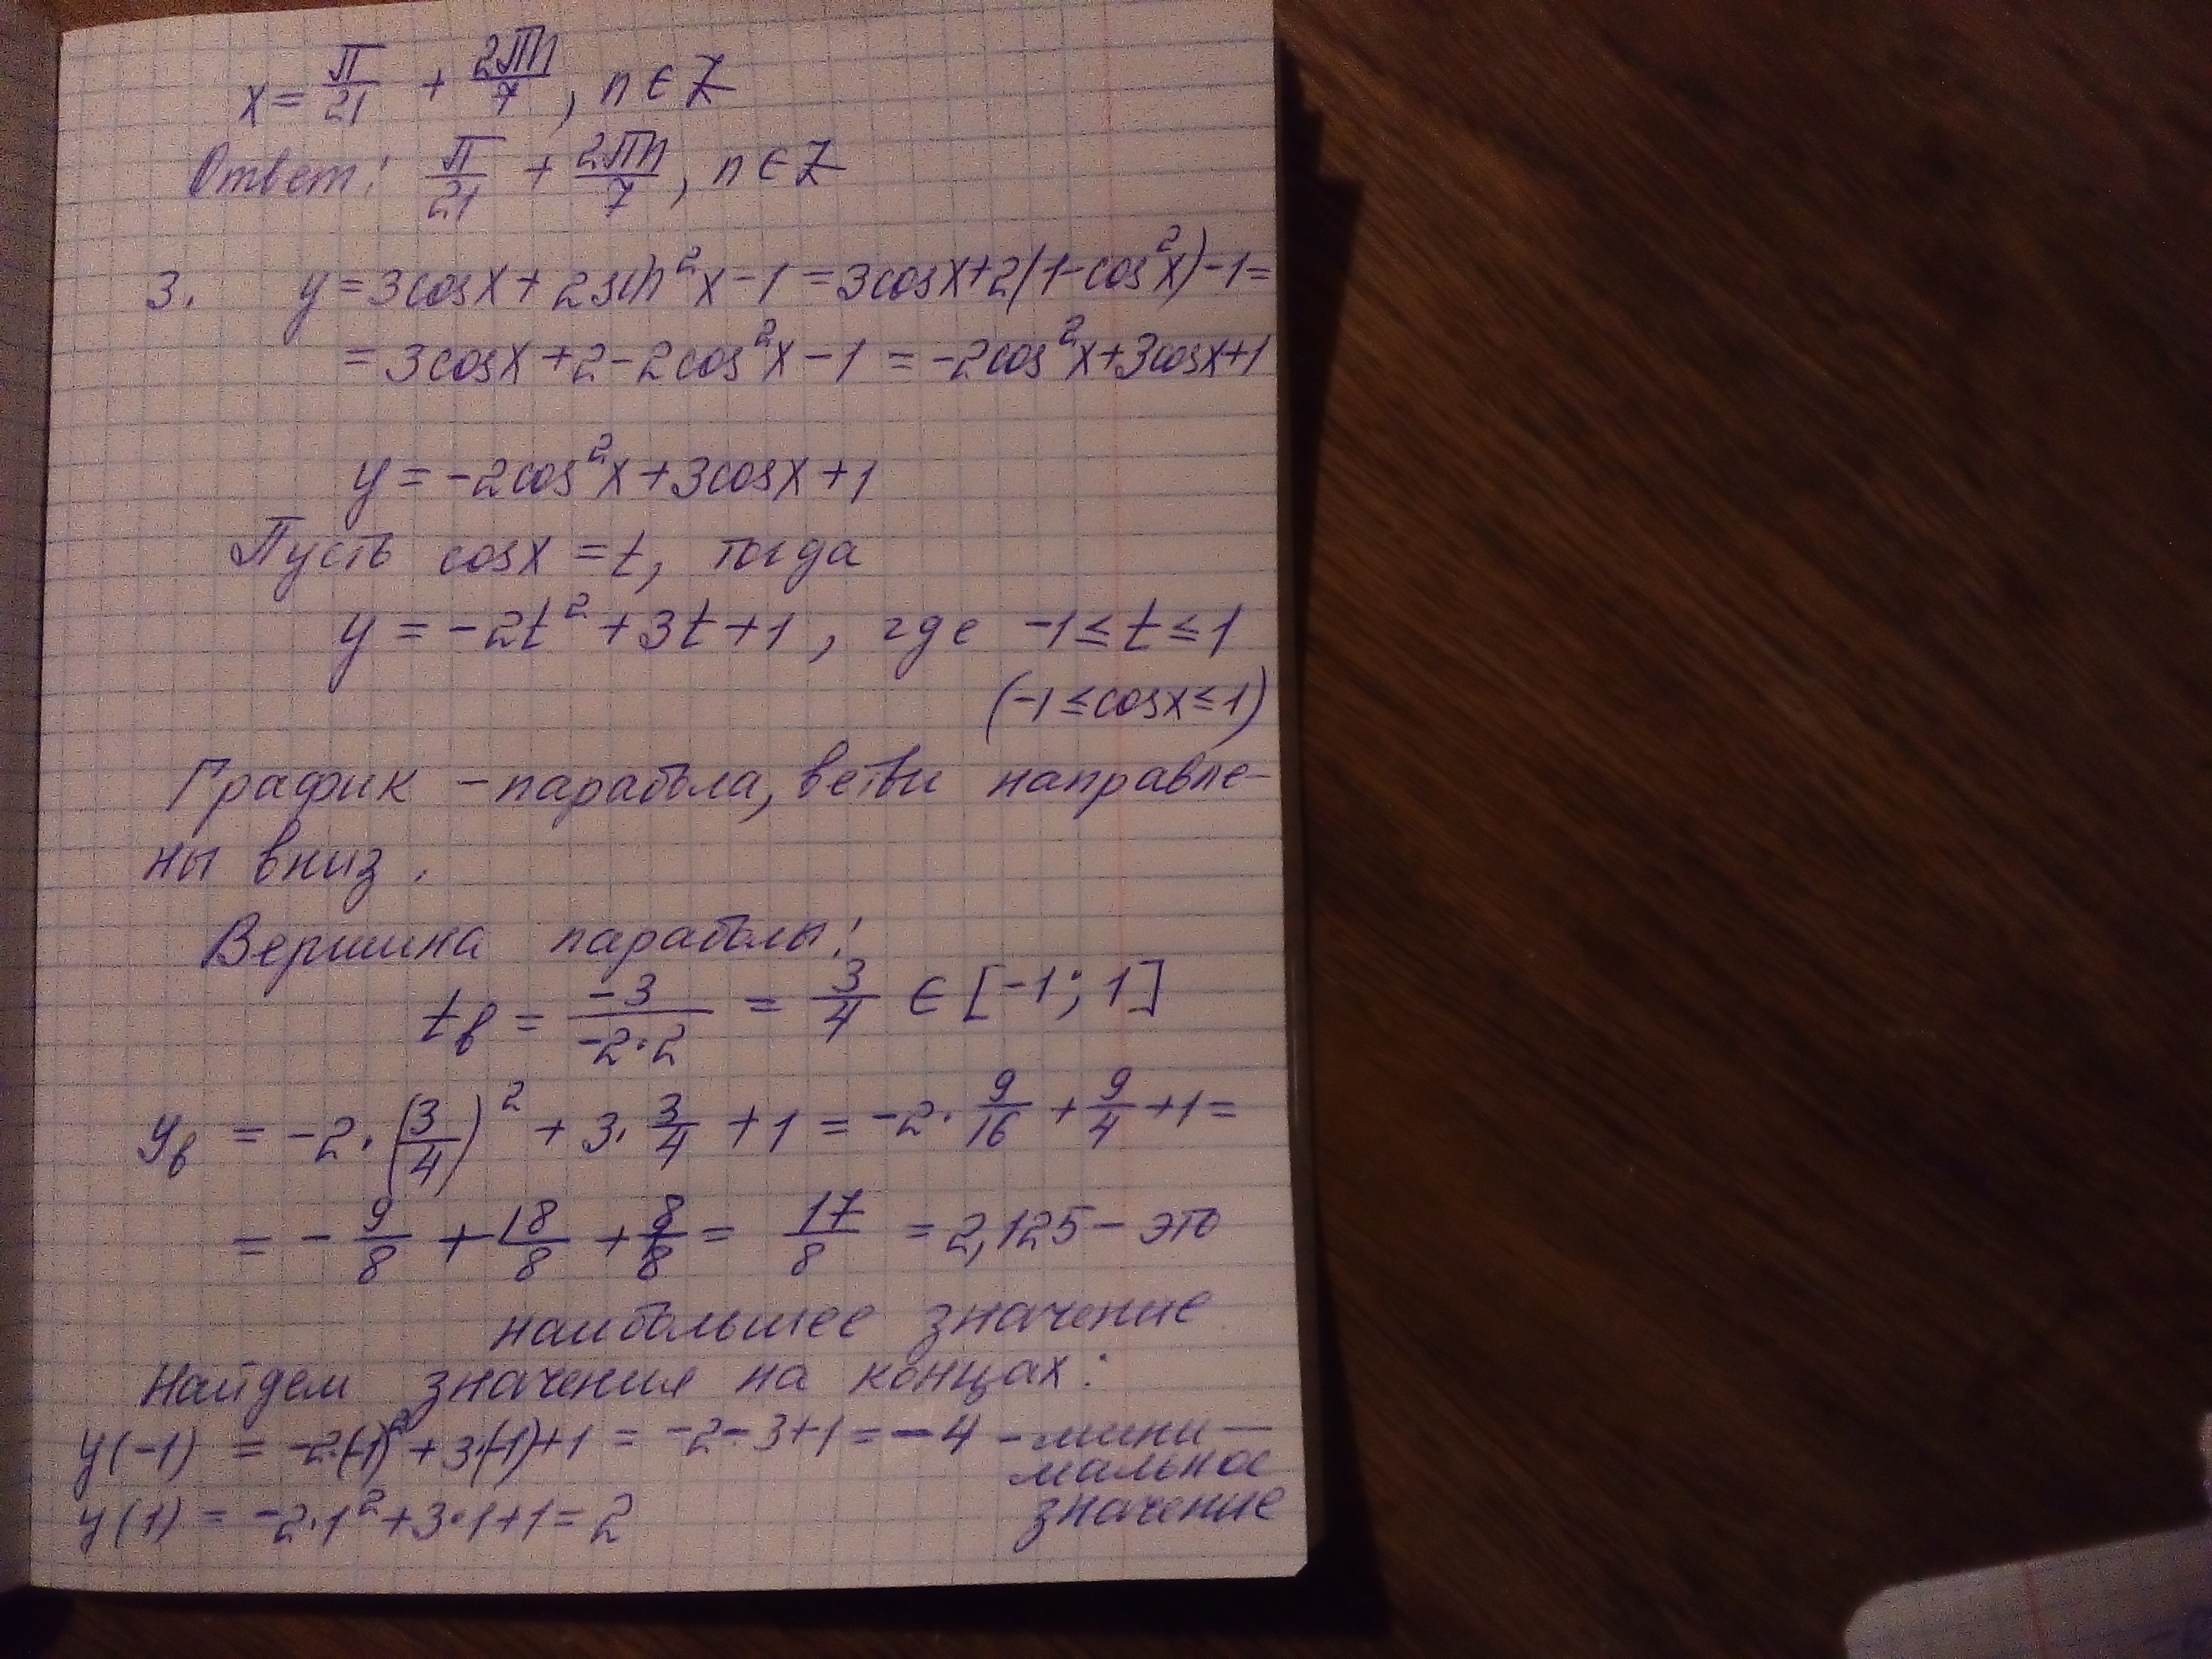 x = π/21 + 2πn/7, n ∈ Z
Ответ: π/21 + 2πn/7, n ∈ Z
3. y = 3cosx + 2sin²x - 1 = 3cosx + 2(1 - cos²x) - 1 =
= 3cosx + 2 - 2cos²x - 1 = -2cos²x + 3cosx + 1
y = -2cos²x + 3cosx + 1
Пусть cosx = t, тогда
y = -2t² + 3t + 1, где -1 ≤ t ≤ 1
(-1 ≤ cosx ≤ 1)
График - парабола, ветви направле-
ны вниз.
Вершина параболы:
tв = -3/(-2·2) = 3/4 ∈ [-1; 1]
yв = -2·(3/4)² + 3·3/4 + 1 = -2·9/16 + 9/4 + 1 =
= -9/8 + 18/8 + 8/8 = 17/8 = 2,125 - это
наибольшее значение
Найдем значения на концах:
y(-1) = -2·(-1)² + 3·(-1) + 1 = -2 - 3 + 1 = -4 - мини-
мальное
значение
y(1) = -2·1² + 3·1 + 1 = 2